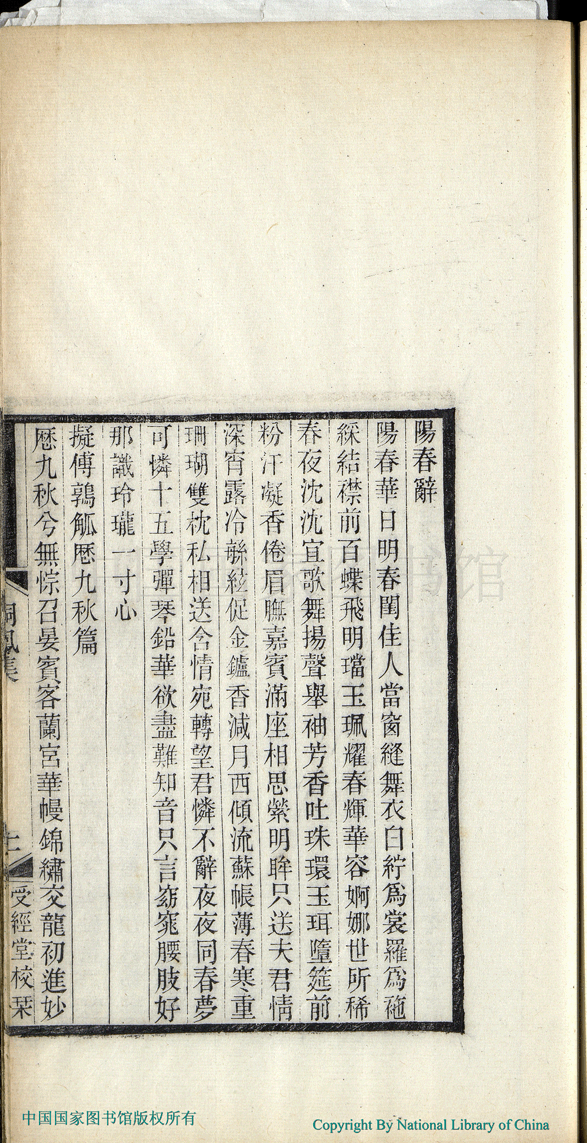 陽春辭
陽春華日明春閨佳人當窗縫舞衣白紵爲裳羅爲袘
綵結襟前百蝶飛明璫玉珮耀春輝華容婀娜世所稀
春夜沈沈宜歌舞揚聲舉袖芳香吐珠環玉珥墮筵前
粉汗凝香倦眉膴嘉賓滿座相思縈明眸只送夫君情
深宵露冷絃促金鑪香減月西傾流蘇帳薄春寒重
珊瑚雙枕私相送含情宛轉望君憐不辭夜夜同春夢
可憐十五學彈琴鉛華欲盡難知音只言窈窕腰肢好
那識玲瓏一寸心
擬傅鶉觚歷九秋篇
歷九秋兮無悰召晏賓客蘭宮華幔錦繡交龍初進妙
桐鳳集
上
受經堂校栞
中国国家图书馆版权所有
Copyright By National Library of China